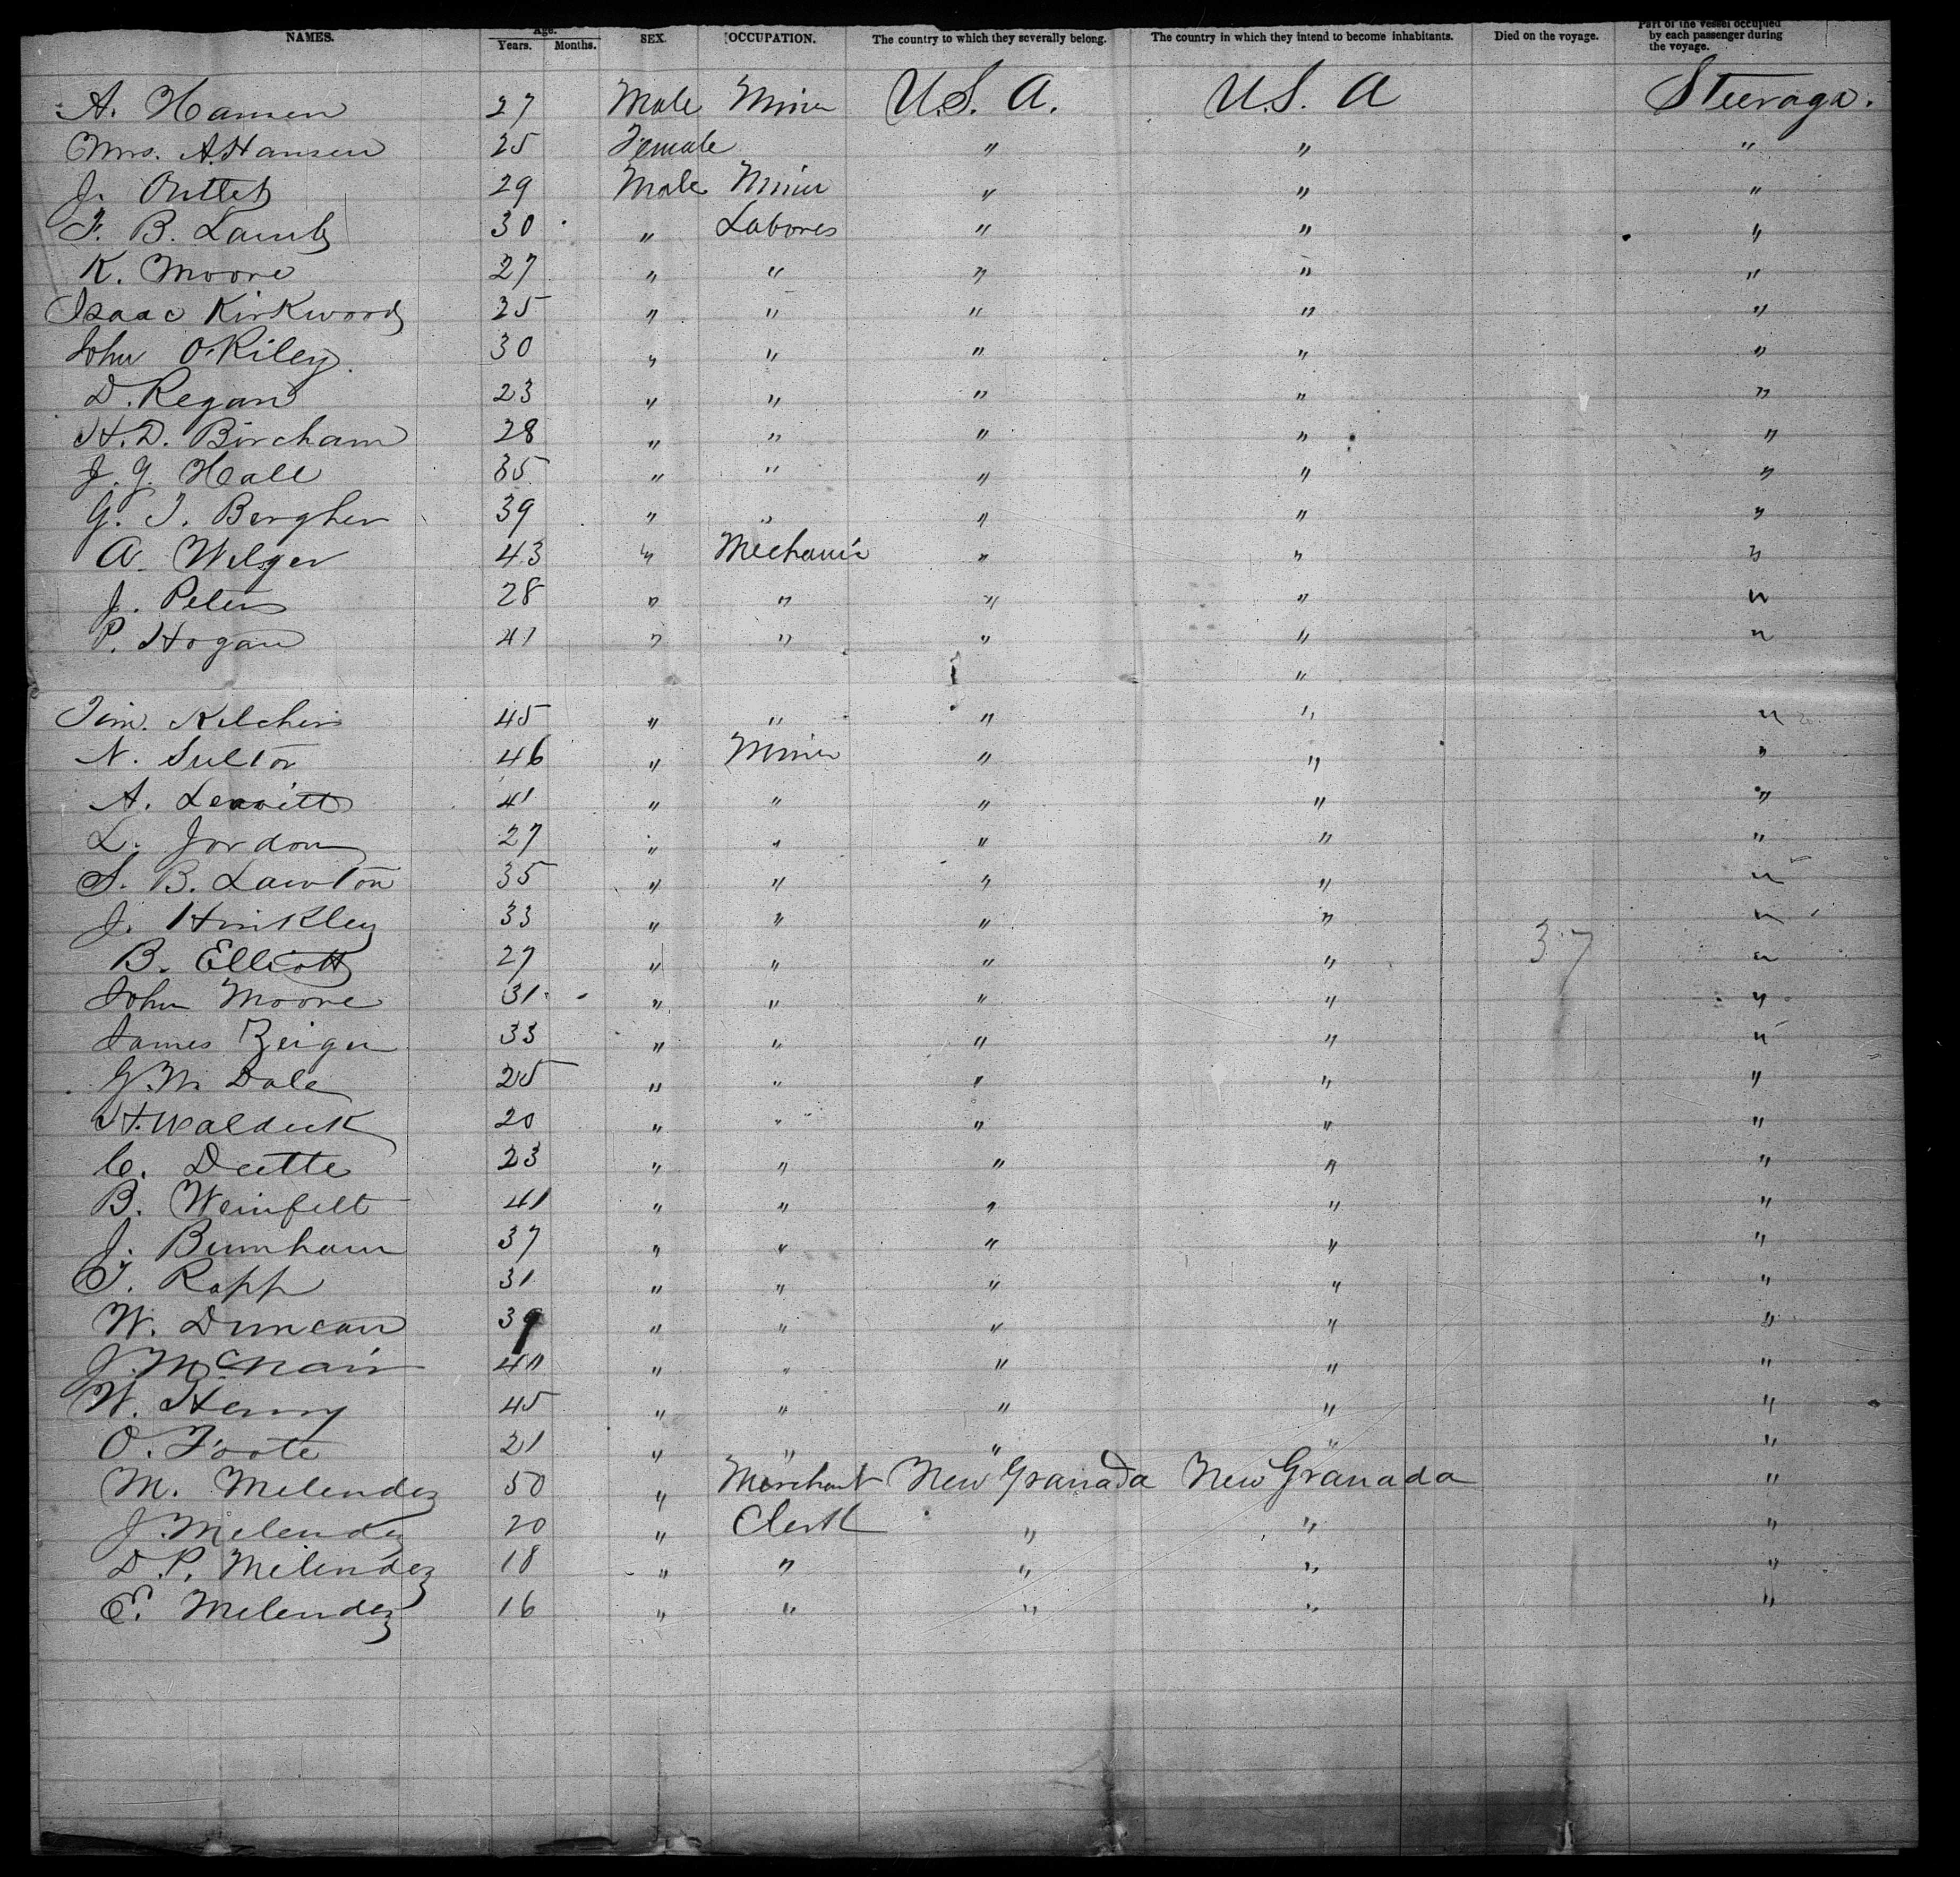 NAMES. Age. Years. Months. SEX. OCCUPATION. The country to which they severally belong. The country in which they intend to become inhabitants. Died on the voyage. Part of the vessel occupied by each passenger during the voyage.
A. Hansen 27 Male Miner U.S. A. U.S. A Steerage.
Mrs. A. Hansen 25 Female " " "
J. 29 Male Miner " " "
F. B. Lamb 30 " Laborer " " "
K. Moore 27 " " " " "
Isaac Kirkwood 25 " " " " "
John O'Riley 30 " " " " "
D. Regan 23 " " " " "
H. D. Bircham 28 " " " " "
J. G. Hall 35 " " " " "
G. T. Bergher 39 " " " " "
A. Welger 43 " Mechanic " " "
J. Peters 28 " " " " "
P. Hogan 41 " " " " "
"
Tim. 45 " " " " "
N. Sultor 46 " Miner " " "
A. Leavitt 41 " " " " "
L. Jordon 27 " " " " "
S. B. Lawton 35 " " " " "
J. Hinkley 33 " " " " "
B. Elliott 27 " " " 37 "
John Moore 31 " " " " "
James Zeiger 33 " " " " "
G. M. Dale 25 " " " " "
H. Waldeck 20 " " " " "
C. Dutte 23 " " " " "
B. Weinfelt 41 " " " " "
J. Burnham 37 " " " " "
T. Rapp 31 " " " " "
W. Duncan 39 " " " " "
J. McNair 40 " " " " "
W. Henry 45 " " " " "
O. Foote 21 " " " " "
M. Melendez 50 " Merchant New Granada New Granada "
J. Melendez 20 " Clerk " " "
D. P. Melendez 18 " " " " "
E. Melendez 16 " " " " "